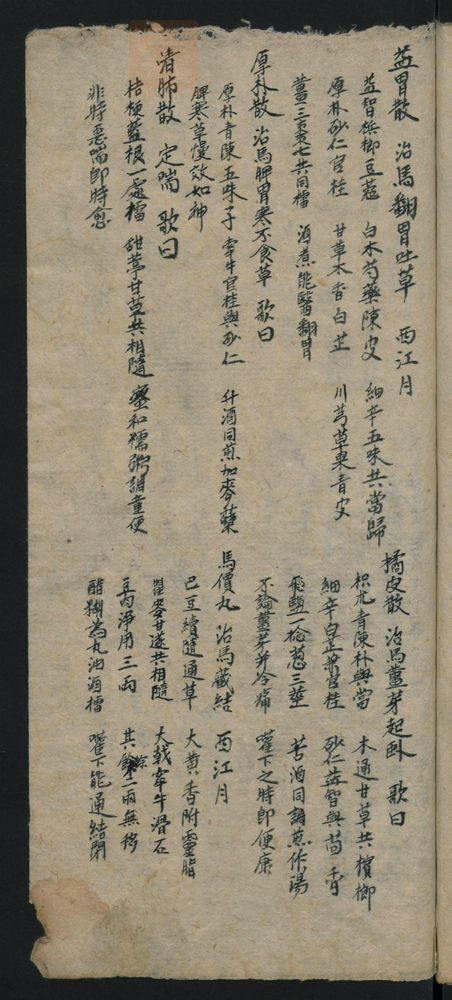 益胃散 治馬翻胃吐草 西江月
益智檳榔豆蔻 白木芍藥陳皮 細辛五味共當歸
厚朴砂仁官桂 甘草木香白芷 川芎草果青皮
薑三棗七共同擂 酒煮能醫翻胃
厚朴散 治馬脾胃寒不食草 歌曰
厚朴青陳五味子 牽牛官桂與砂仁 升酒同煎加麥糵
脾寒草慢效如神
清肺散 定喘 歌曰
桔梗藍根一處擂 甜葶甘草共相隨 蜜和糯粥調童便
非時惡喘即時愈
橘皮散 治馬薑芽起臥 歌曰
枳朮青陳朴與當 木通甘草共檳榔
細辛白芷兼官桂 砂仁益智與茴香
飛鹽一捻葱三莖 苦酒同調煎作湯
不論薑芽并冷痛 嚾下之時即便康
馬價丸 治馬藏結 西江月
巴豆續隨通草 大黃香附靈脂
瞿麥甘遂共相隨 大戟牽牛滑石
豆肉淨用三兩 其餘二兩無移
醋糊為丸油酒擂 嚾下能通結閉